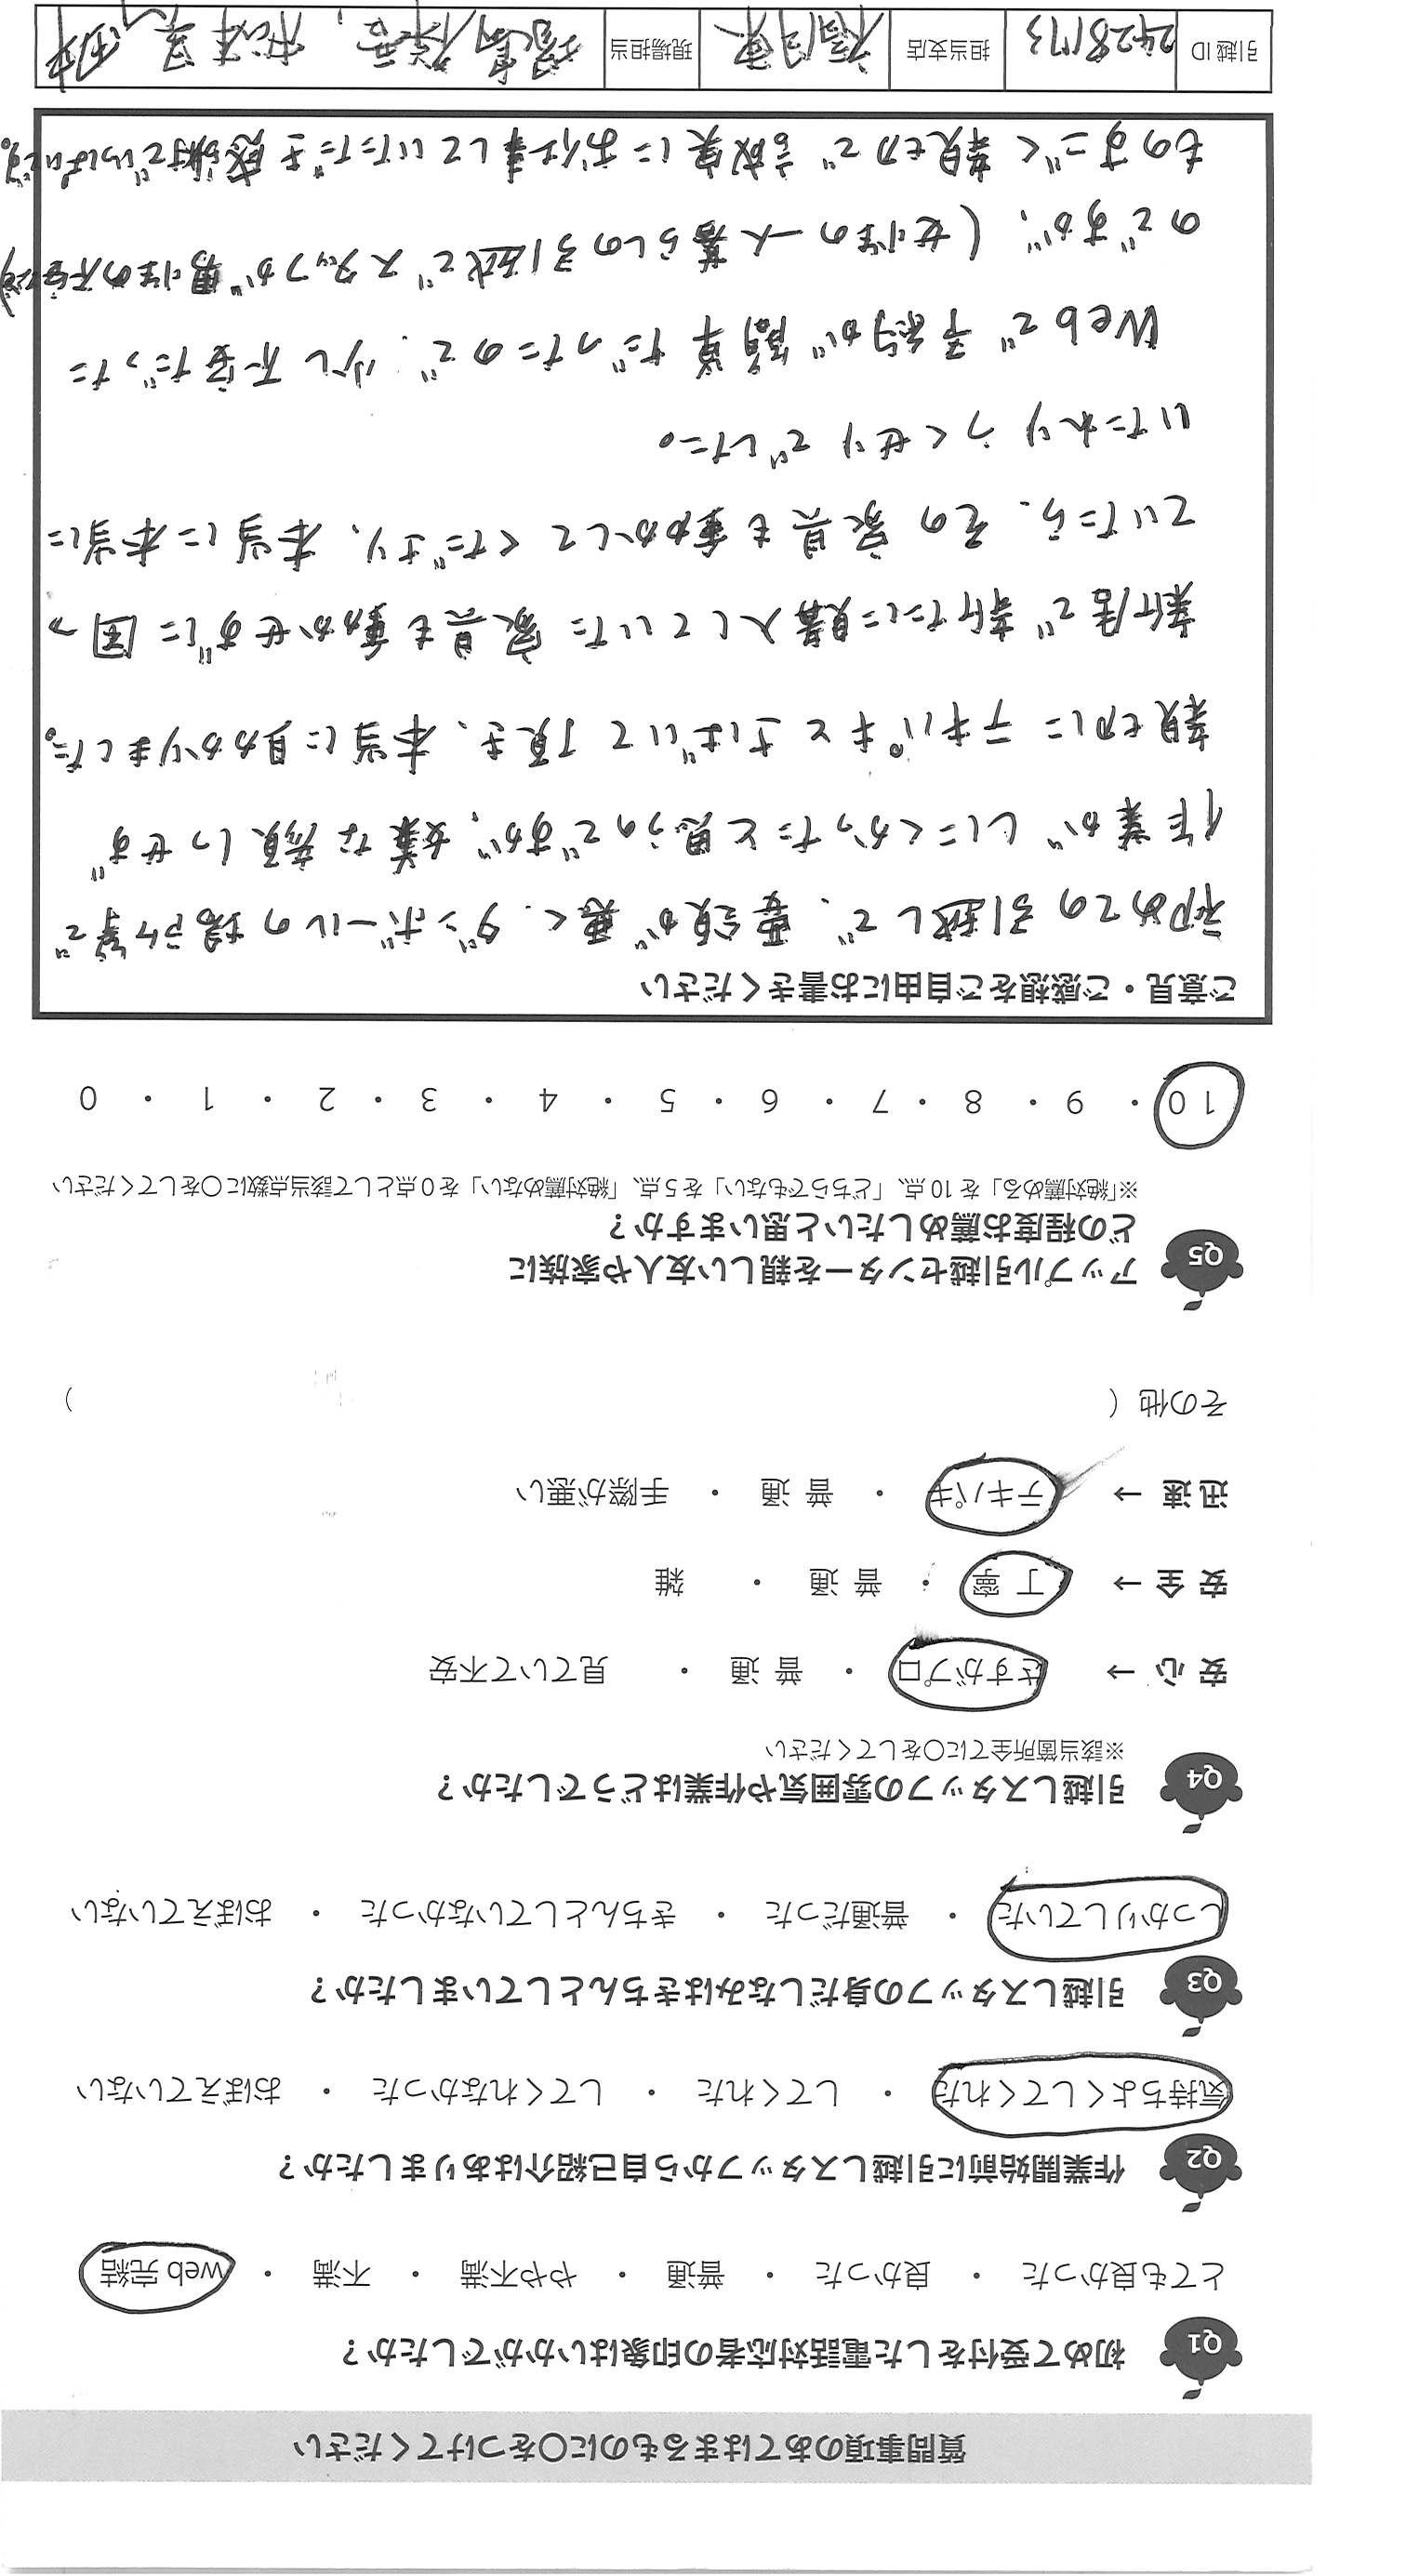 質問事項のあてはまるものに〇をつけてください
Q1 初めて受付をした電話対応者の印象はいかがでしたか？
とても良かった ・ 良かった ・ 普通 ・ やや不満 ・ 不満 ・ web 完結
Q2 作業開始前に引越しスタッフから自己紹介はありましたか？
気持ちよくしてくれた ・ してくれた ・ してくれなかった ・ おぼえていない
Q3 引越しスタッフの身だしなみはきちんとしていましたか？
しっかりしていた ・ 普通だった ・ きちんとしていなかった ・ おぼえていない
Q4 引越しスタッフの雰囲気や作業はどうでしたか？
※該当箇所全てに〇をしてください
安心 → さすがプロ ・ 普通 ・ 見ていて不安
安全 → 丁寧 ・ 普通 ・ 雑
迅速 → テキパキ ・ 普通 ・ 手際が悪い
その他（ ）
Q5 アップル引越センターを親しい友人や家族に
どの程度お薦めしたいと思いますか？
※「絶対薦める」を 10 点、「どちらでもない」を 5 点、「絶対薦めない」を 0 点として該当点数に〇をしてください
10 ・ 9 ・ 8 ・ 7 ・ 6 ・ 5 ・ 4 ・ 3 ・ 2 ・ 1 ・ 0
ご意見・ご感想をご自由にお書きください
初めての引越しで、要領が悪く、ダンボールの場所等で
作業がしにくかったと思うのですが、嫌な顔しせず
親切にテキパキとさばいて頂き、本当に助かりました。
新居で新たに購入していた家具も動かせずに困っ
ていたら、その家具も動かしてくださり、本当に本当に
いたれりつくせりでした。
Webで予約が簡単だったので、少し不安だった
のですが、(女性の一人暮らしの引越でスタッフが男性の不安等)
ものすごく親切で誠実にお仕事していただき感謝でいっぱいです。
引越 ID 2428173 担当支店 福岡東 現場担当